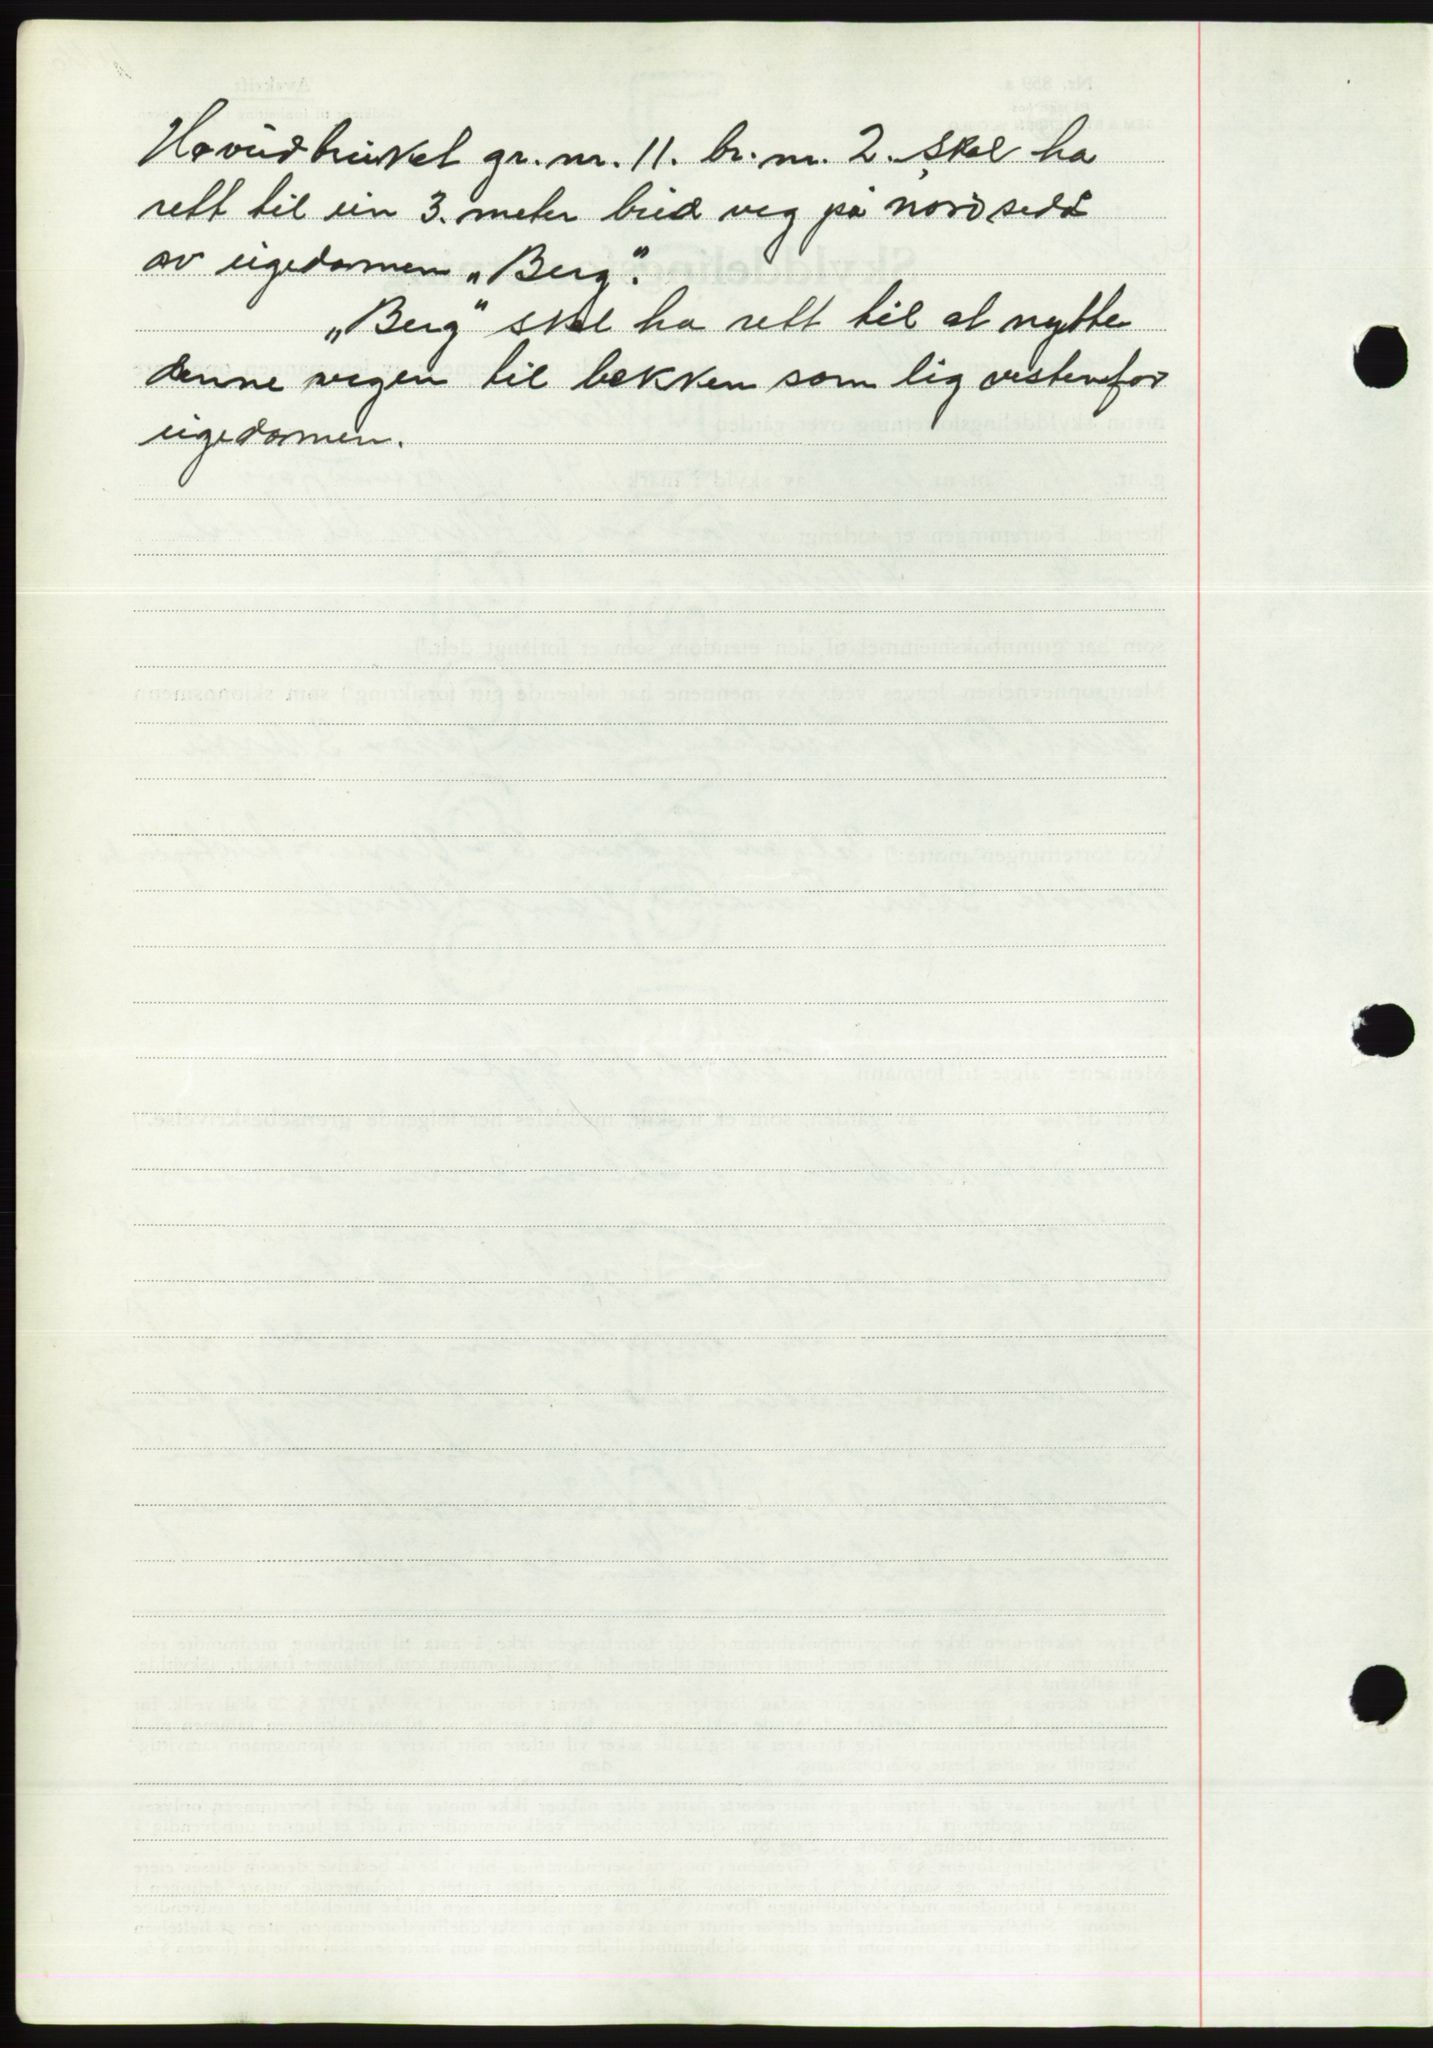 Hovudbruket gr. nr. 11. br. nr. 2. skal ha
rett til ein 3. meter bied veg på nordsedå
av eigedomen „Berg".
„Berg" skal ha rett til at nytte
denne vegen til bekken som lig vestenfor
eigedomen.